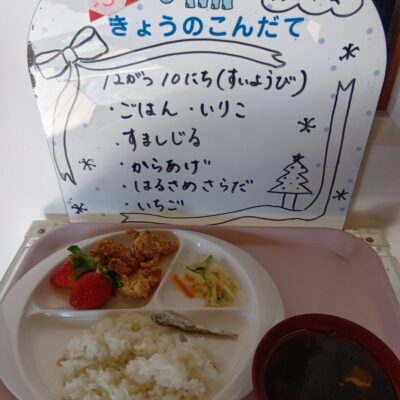 きょうのこんだて
12がつ10にち(すいようび)
・ごはん・いりこ
・すましじる
・からあげ
・はるさめさらだ
・いちご